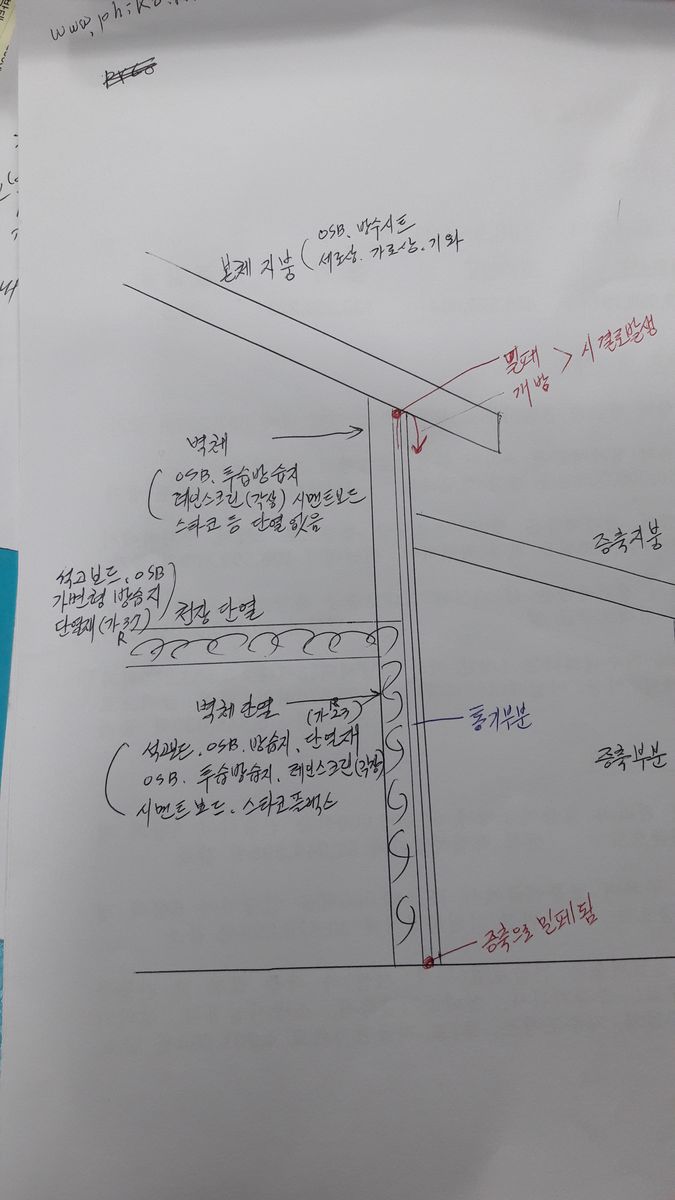 www.phiko.
본체 지붕
OSB. 방수시트
세로상. 가로상. 기와
밀폐
개방 > 시 결로발생
벽체
OSB. 투습방습지
레인스크린(각상) 시멘트보드
스타코 등 단열없음
증축지붕
석고보드. OSB
가변형 방습지
단열재(가 37)
R
천장 단열
벽체 단열 (가 23)
R
통기부분
석고보드. OSB. 방습지. 단열재
OSB. 투습방습지. 레인스크린(각상)
시멘트보드. 스타코플렉스
증축부분
증축으로 밀폐됨